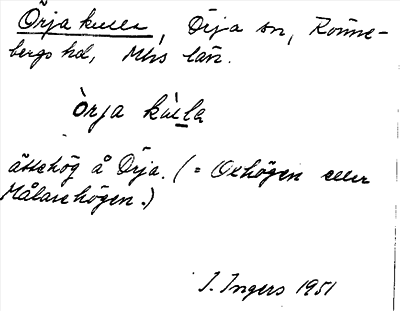 Örja kulla, Örja sn, Rönne-
bergs hd, Mhs län.
Òrja kùlla
ättehög å Örja. (= Oxhögen eller
Målarehögen.)
I. Ingers 1951